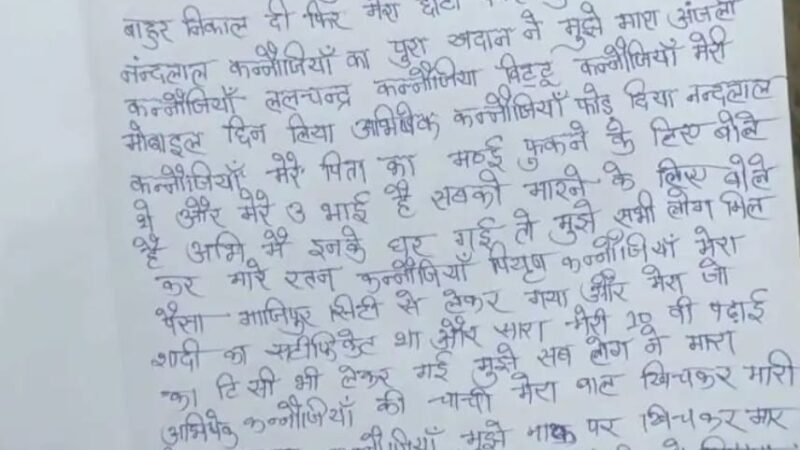 बाहर निकाल दी फिर मेरा छोटा
नन्दलाल कन्नौजियाँ का पुरा खदान ने मुझे मारा अंजली
कन्नौजियाँ ललचन्द्र कन्नौजिया विट्टू कन्नौजियाँ मेरी
मोबाइल छिन लिया अभिषेक कन्नौजियाँ फोड़ दिया नन्दलाल
कन्नौजियाँ मेरे पिता का मड़ई फुकने के लिए बोले
थे और मेरे 3 भाई है सबको मारने के लिए बोले
है अभि मै इनके घर गई तो मुझे सभी लोग मिल
कर मारे रतन कन्नौजियाँ पियुष कन्नौजियाँ मेरा
पैसा गाजिपुर सिटी से लेकर गया और मेरा जो
शादी का सर्टीफिकेट था और सारा मेरी 10 वी पढ़ाई
का टिसी भी लेकर गई मुझे सब लोग ने मारा
अभिषेक कन्नौजियाँ की चाची मेरा बाल खिचकर मारी
मुझे नाक पर खिचकर मार